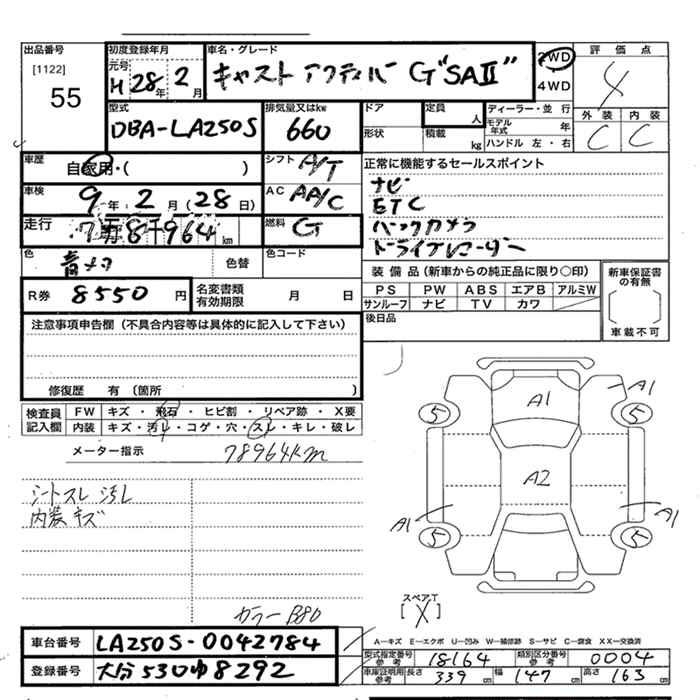 出品番号
[1122]
55
初度登録年月
元号 H 28年 2月
車名・グレード
キャスト アクティバ G"SAⅡ"
2WD
4WD
評価点
4
外装 内装
C C
型式
DBA-LA250S
排気量又はkw
660
ドア
形状
定員
人
積載
kg
ディーラー・並行
モデル年式 年
ハンドル 左・右
車歴
自家用・( )
シフト
A/T
正常に機能するセールスポイント
ナビ
ETC
バックカメラ
ドライブレコーダー
車検
9年 2月 (28日)
AC
AA/C
走行
7万8千964km
燃料
G
色
青メタ
色替
色コード
R券 8550円
名変書類有効期限 月 日
装備品(新車からの純正品に限り○印)
PS PW ABS エアB アルミW
サンルーフ ナビ TV カワ
新車保証書の有無
車載不可
後日品
注意事項申告欄(不具合内容等は具体的に記入して下さい)
修復歴 有 (箇所 )
検査員記入欄
FW キズ・飛石・ヒビ割・リペア跡・X要
内装 キズ・汚レ・コゲ・穴・スレ・キレ・破レ
メーター指示 78964km
シートスレ 汚レ
内装キズ
カラー B80
A1
A1
5
5
A2
A1
A1
5
5
スペアT
[X]
A―キズ E―エクボ U―凹み W―補修跡 S―サビ C―腐食 XX―交換済
車台番号 LA250S-0042784
登録番号 大分530ゆ8292
型式指定番号参考 18164
類別区分番号参考 0004
車庫証明用参考 長さ 339cm 幅 147cm 高さ 163cm